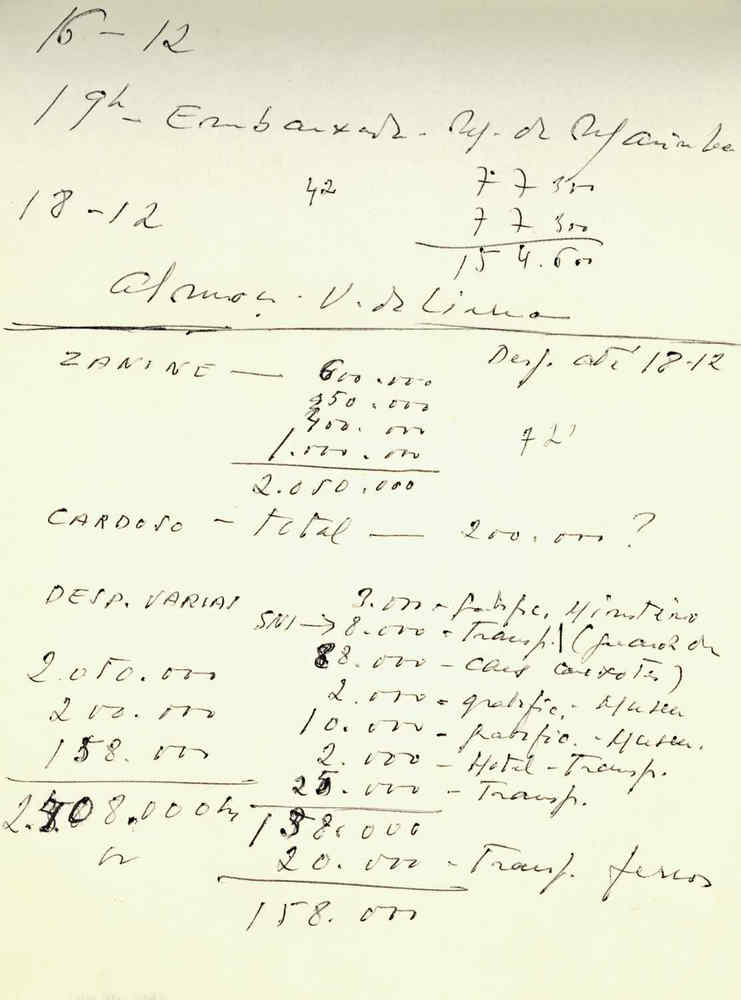 16 - 12
19h - Embaixada - R. de
42 77 300
18 - 12 77 300
154.600
Almoço - V. de Lima
ZANINE — 600.000 Desp. até 18-12
350.000
400.000 72'
1.000.000
2.050.000
CARDOSO - total — 200.000 ?
DESP. VARIAS 3.000 - gratific. Ministério
SNI → 8.000 - Transp. (guarda de
2.050.000 88.000 - caixotes)
200.000 2.000 - gratific. - Museu
158.000 10.000 - gratific. - Museu.
2.000 - Hotel - Transp.
25.000 - Transp.
2.408.000 138.000
20.000 - Transp. ferros
158.000